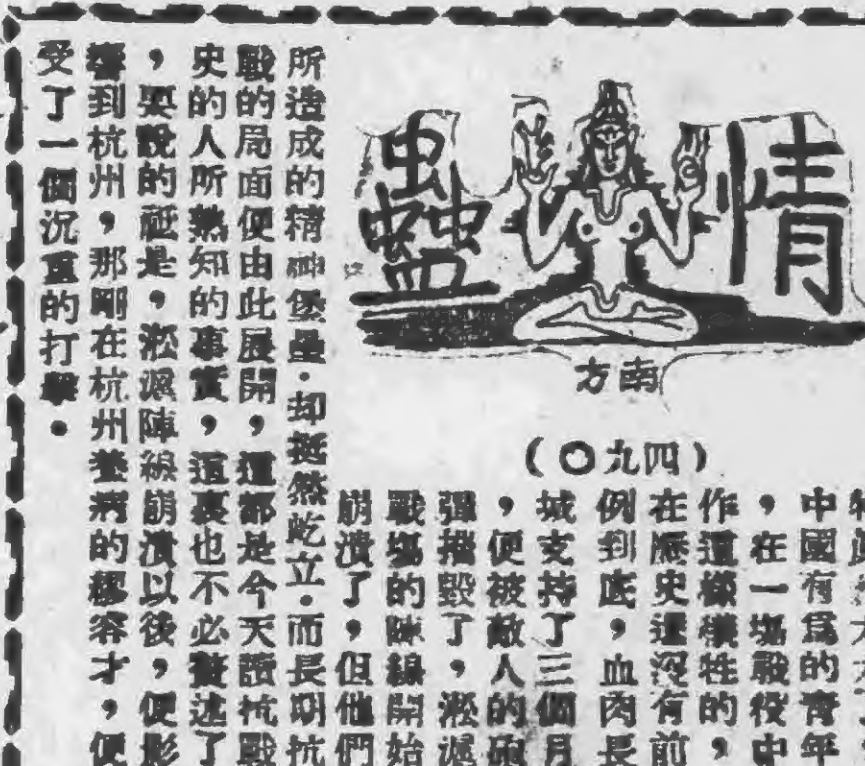 情蠱
南方
(四九〇)
中國有爲的青年
，在一塲戰役中
作這樣犧牲的，
在歷史還沒有前
例到底，血肉長
城支持了三個月
，便被敵人的砲
彈摧毀了，淞滬
戰塲的陣線開始
崩潰了，但他們
所造成的精神堡壘．却挺然屹立．而長期抗
戰的局面便由此展開，這都是今天讀抗戰
史的人所熟知的事實，這裏也不必贅述了
，要說的祗是，淞滬陣線崩潰以後，便影
響到杭州，那剛在杭州養病的繆容才，便
受了一個沉重的打擊．